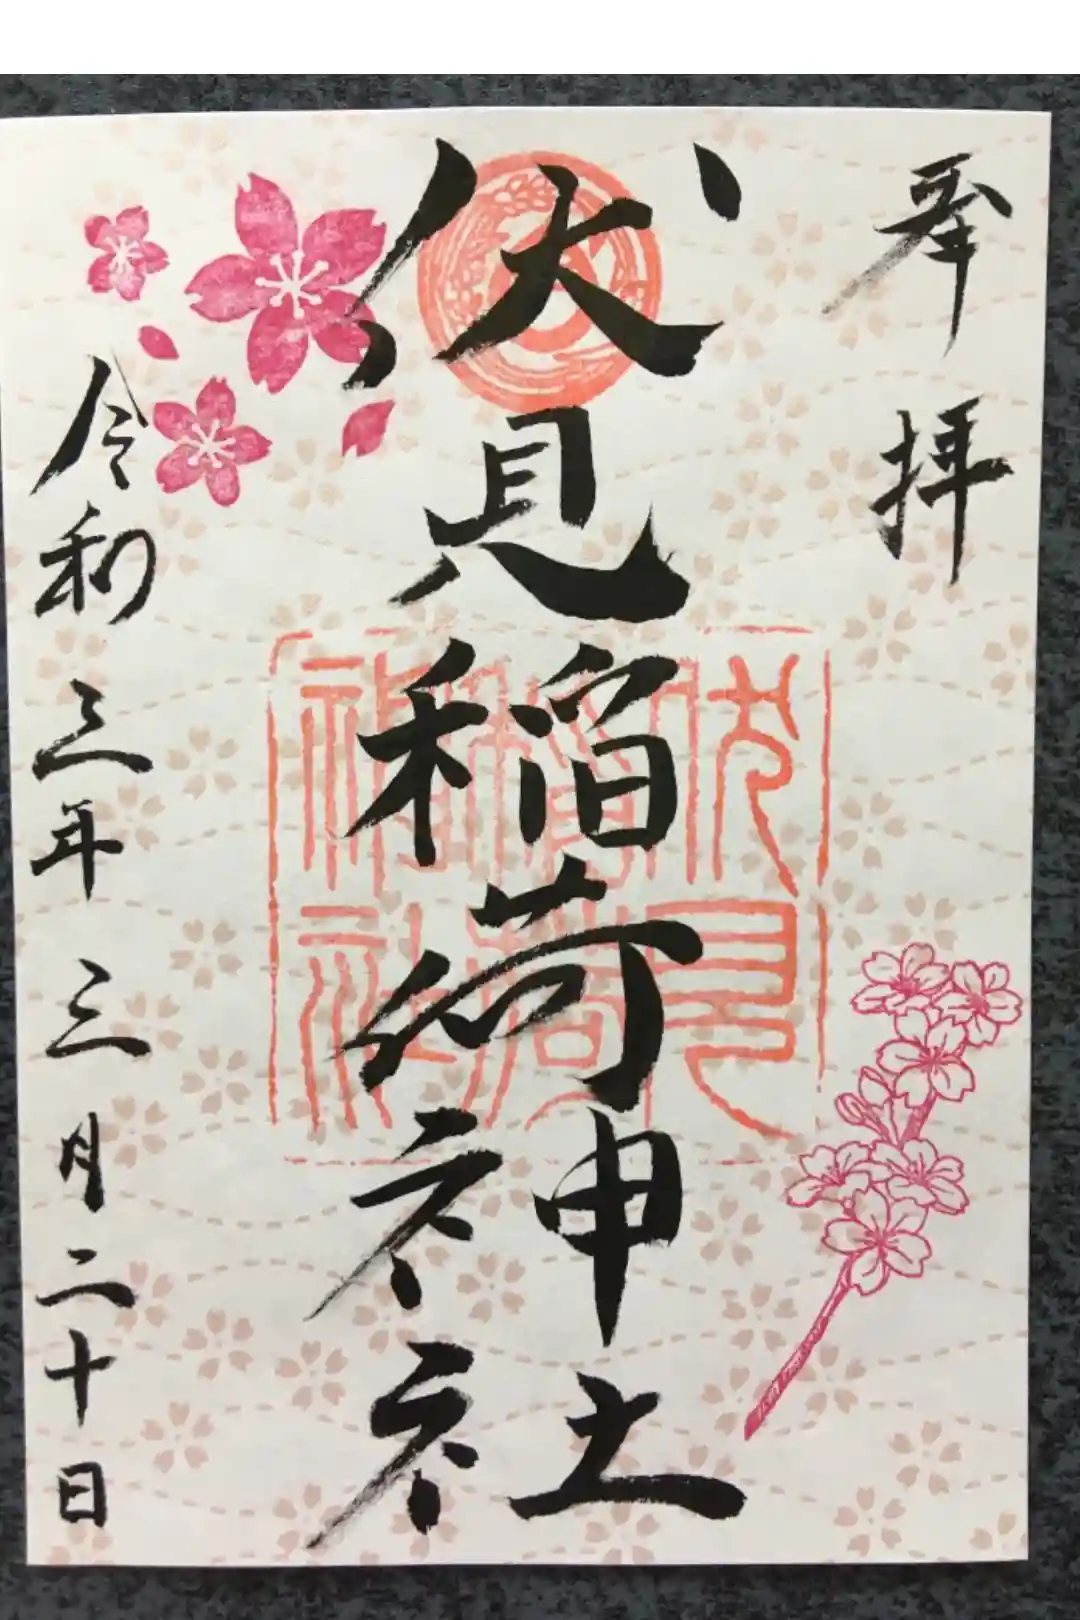 奉拝
伏見稲荷神社
伏見
稲荷
神社
令和三年三月二十日